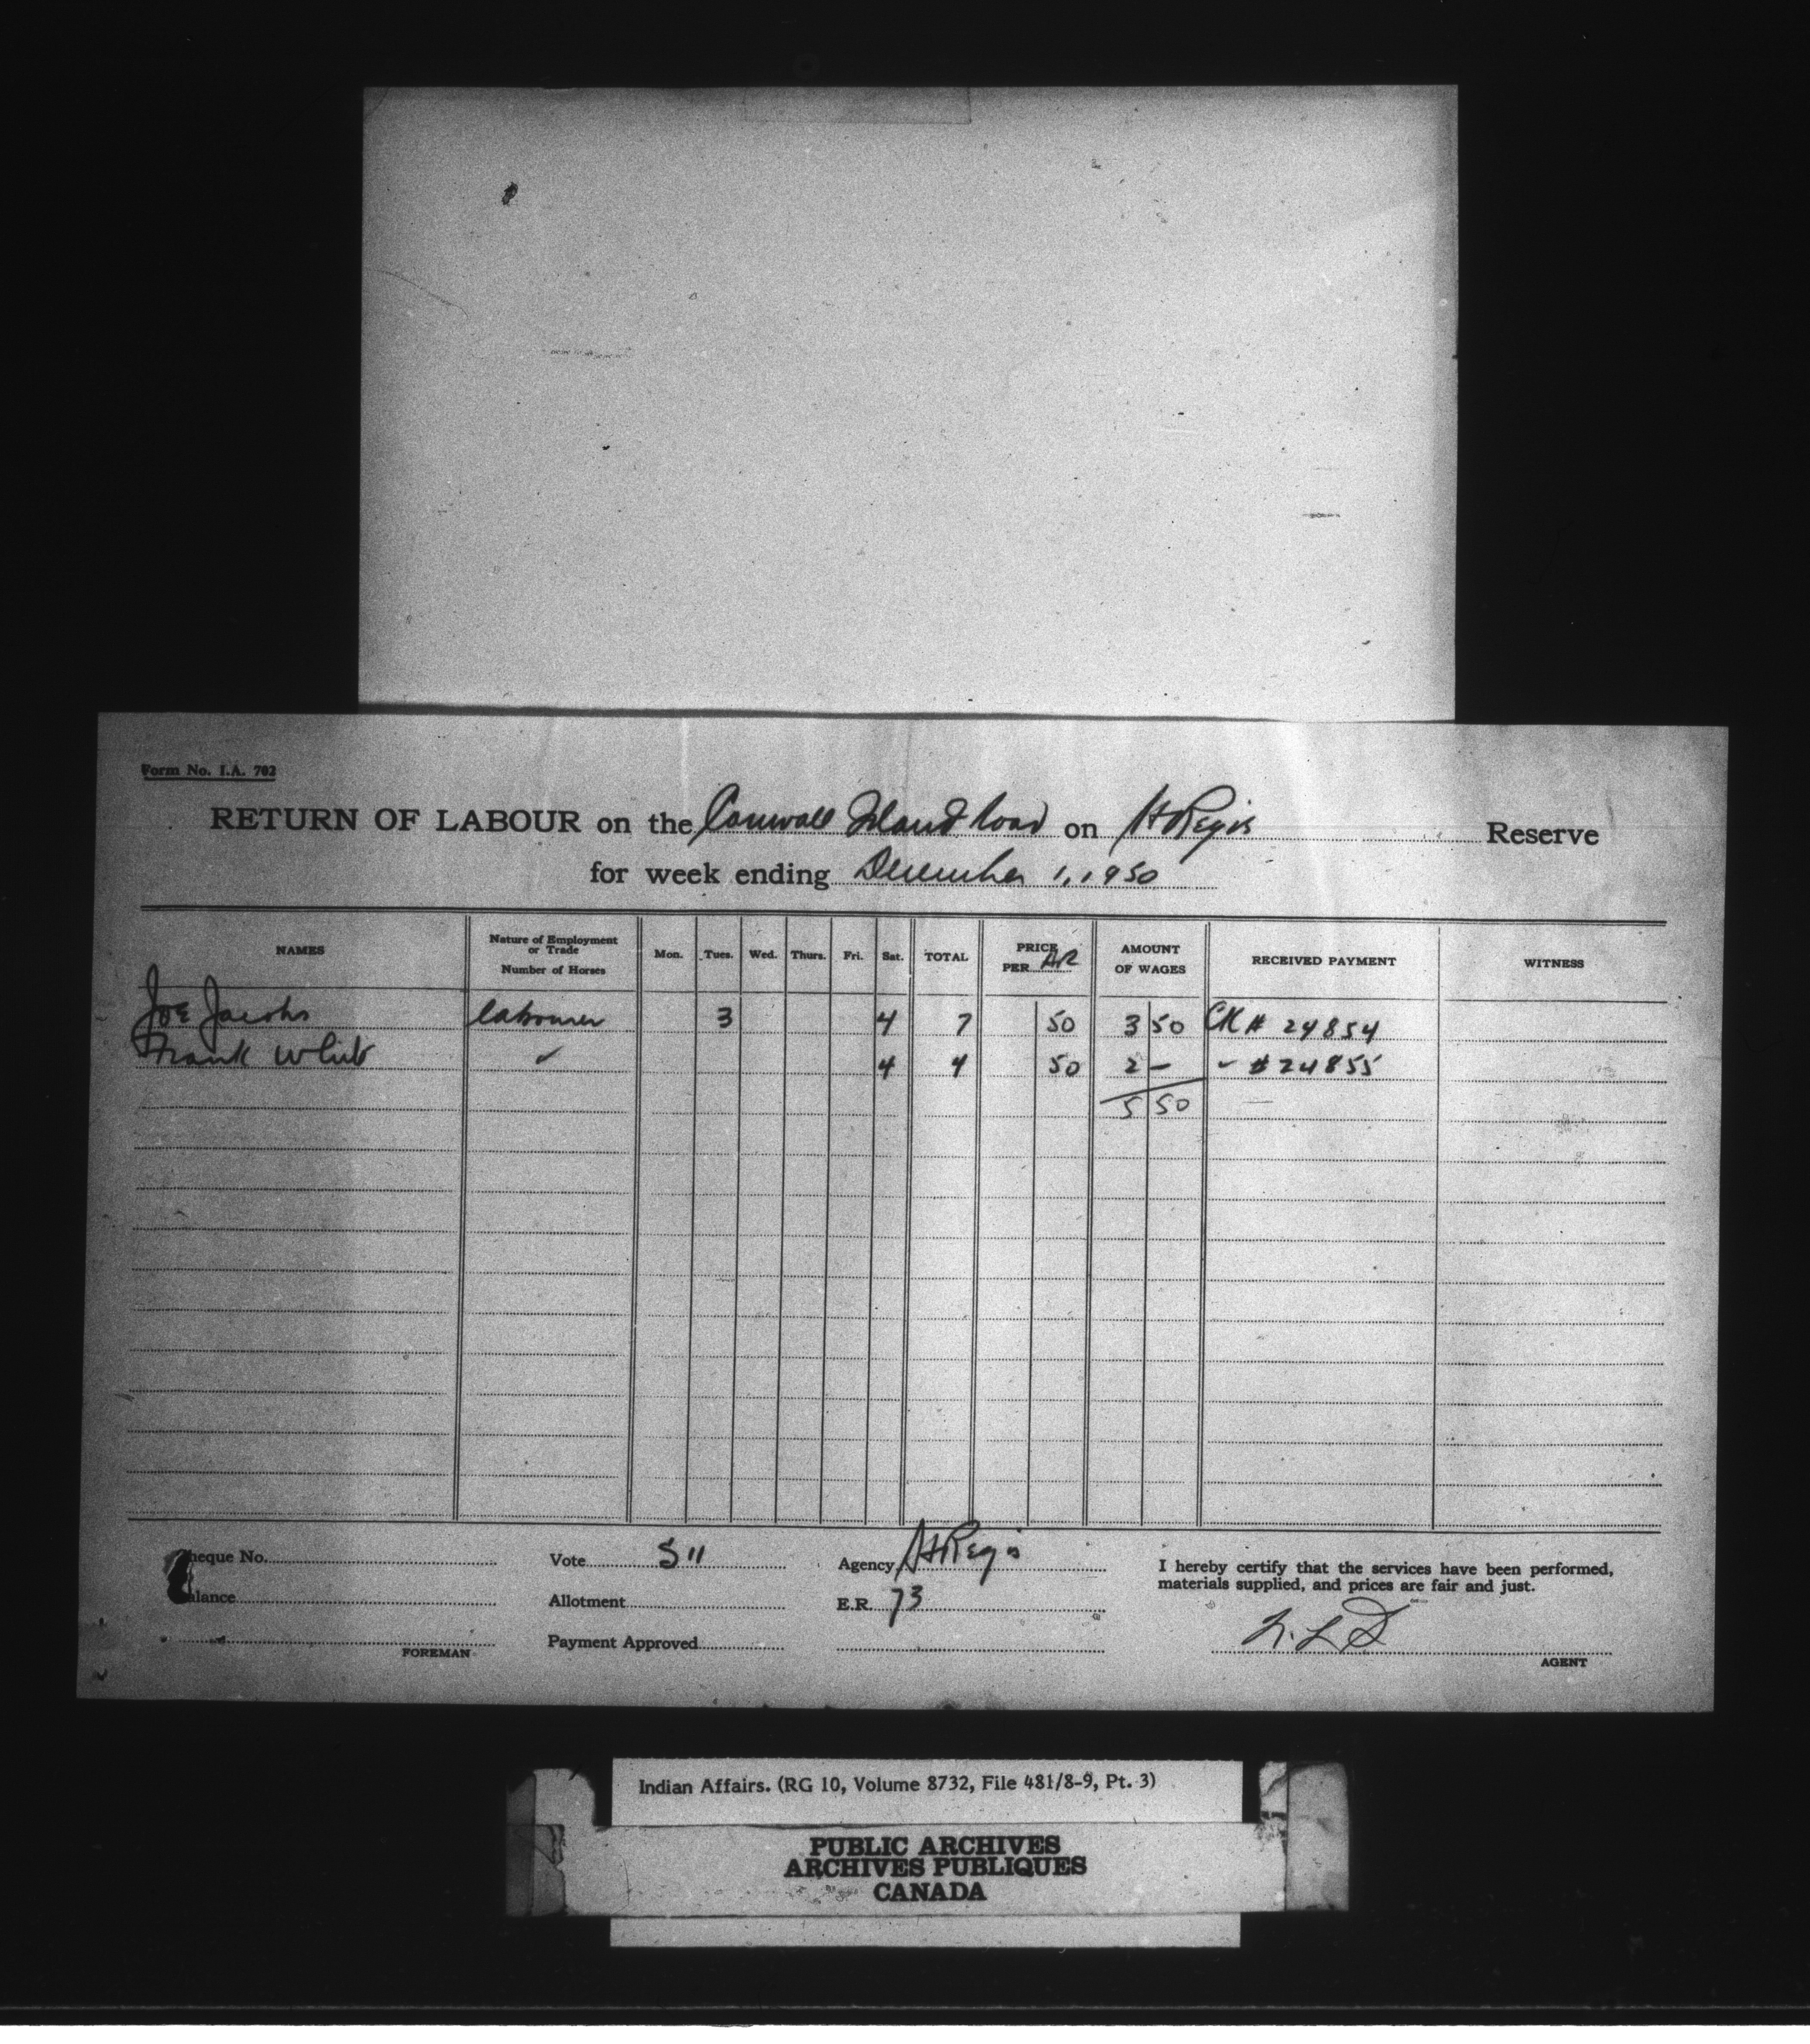 Form No. I.A. 702
RETURN OF LABOUR on the Cornwall Island road on St Regis Reserve
for week ending December 1, 1950
NAMES Nature of Employment or Trade Number of Horses Mon. Tues. Wed. Thurs. Fri. Sat. TOTAL PRICE PER HR AMOUNT OF WAGES RECEIVED PAYMENT WITNESS
Joe Jacobs labourer 3 4 7 50 3 50 CK # 24854
Frank White " 4 4 50 2 — " # 24855
5 50
heque No. Vote 511 Agency St Regis I hereby certify that the services have been performed,
materials supplied, and prices are fair and just.
alance Allotment E.R. 73
FOREMAN Payment Approved AGENT
Indian Affairs. (RG 10, Volume 8732, File 481/8-9, Pt. 3)
PUBLIC ARCHIVES
ARCHIVES PUBLIQUES
CANADA